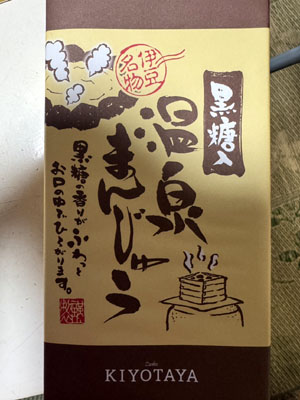 伊豆
名物
黒糖入
温泉
まんじゅう
黒糖の香りがふわっと
お口の中でひろがります。
KIYOTAYA